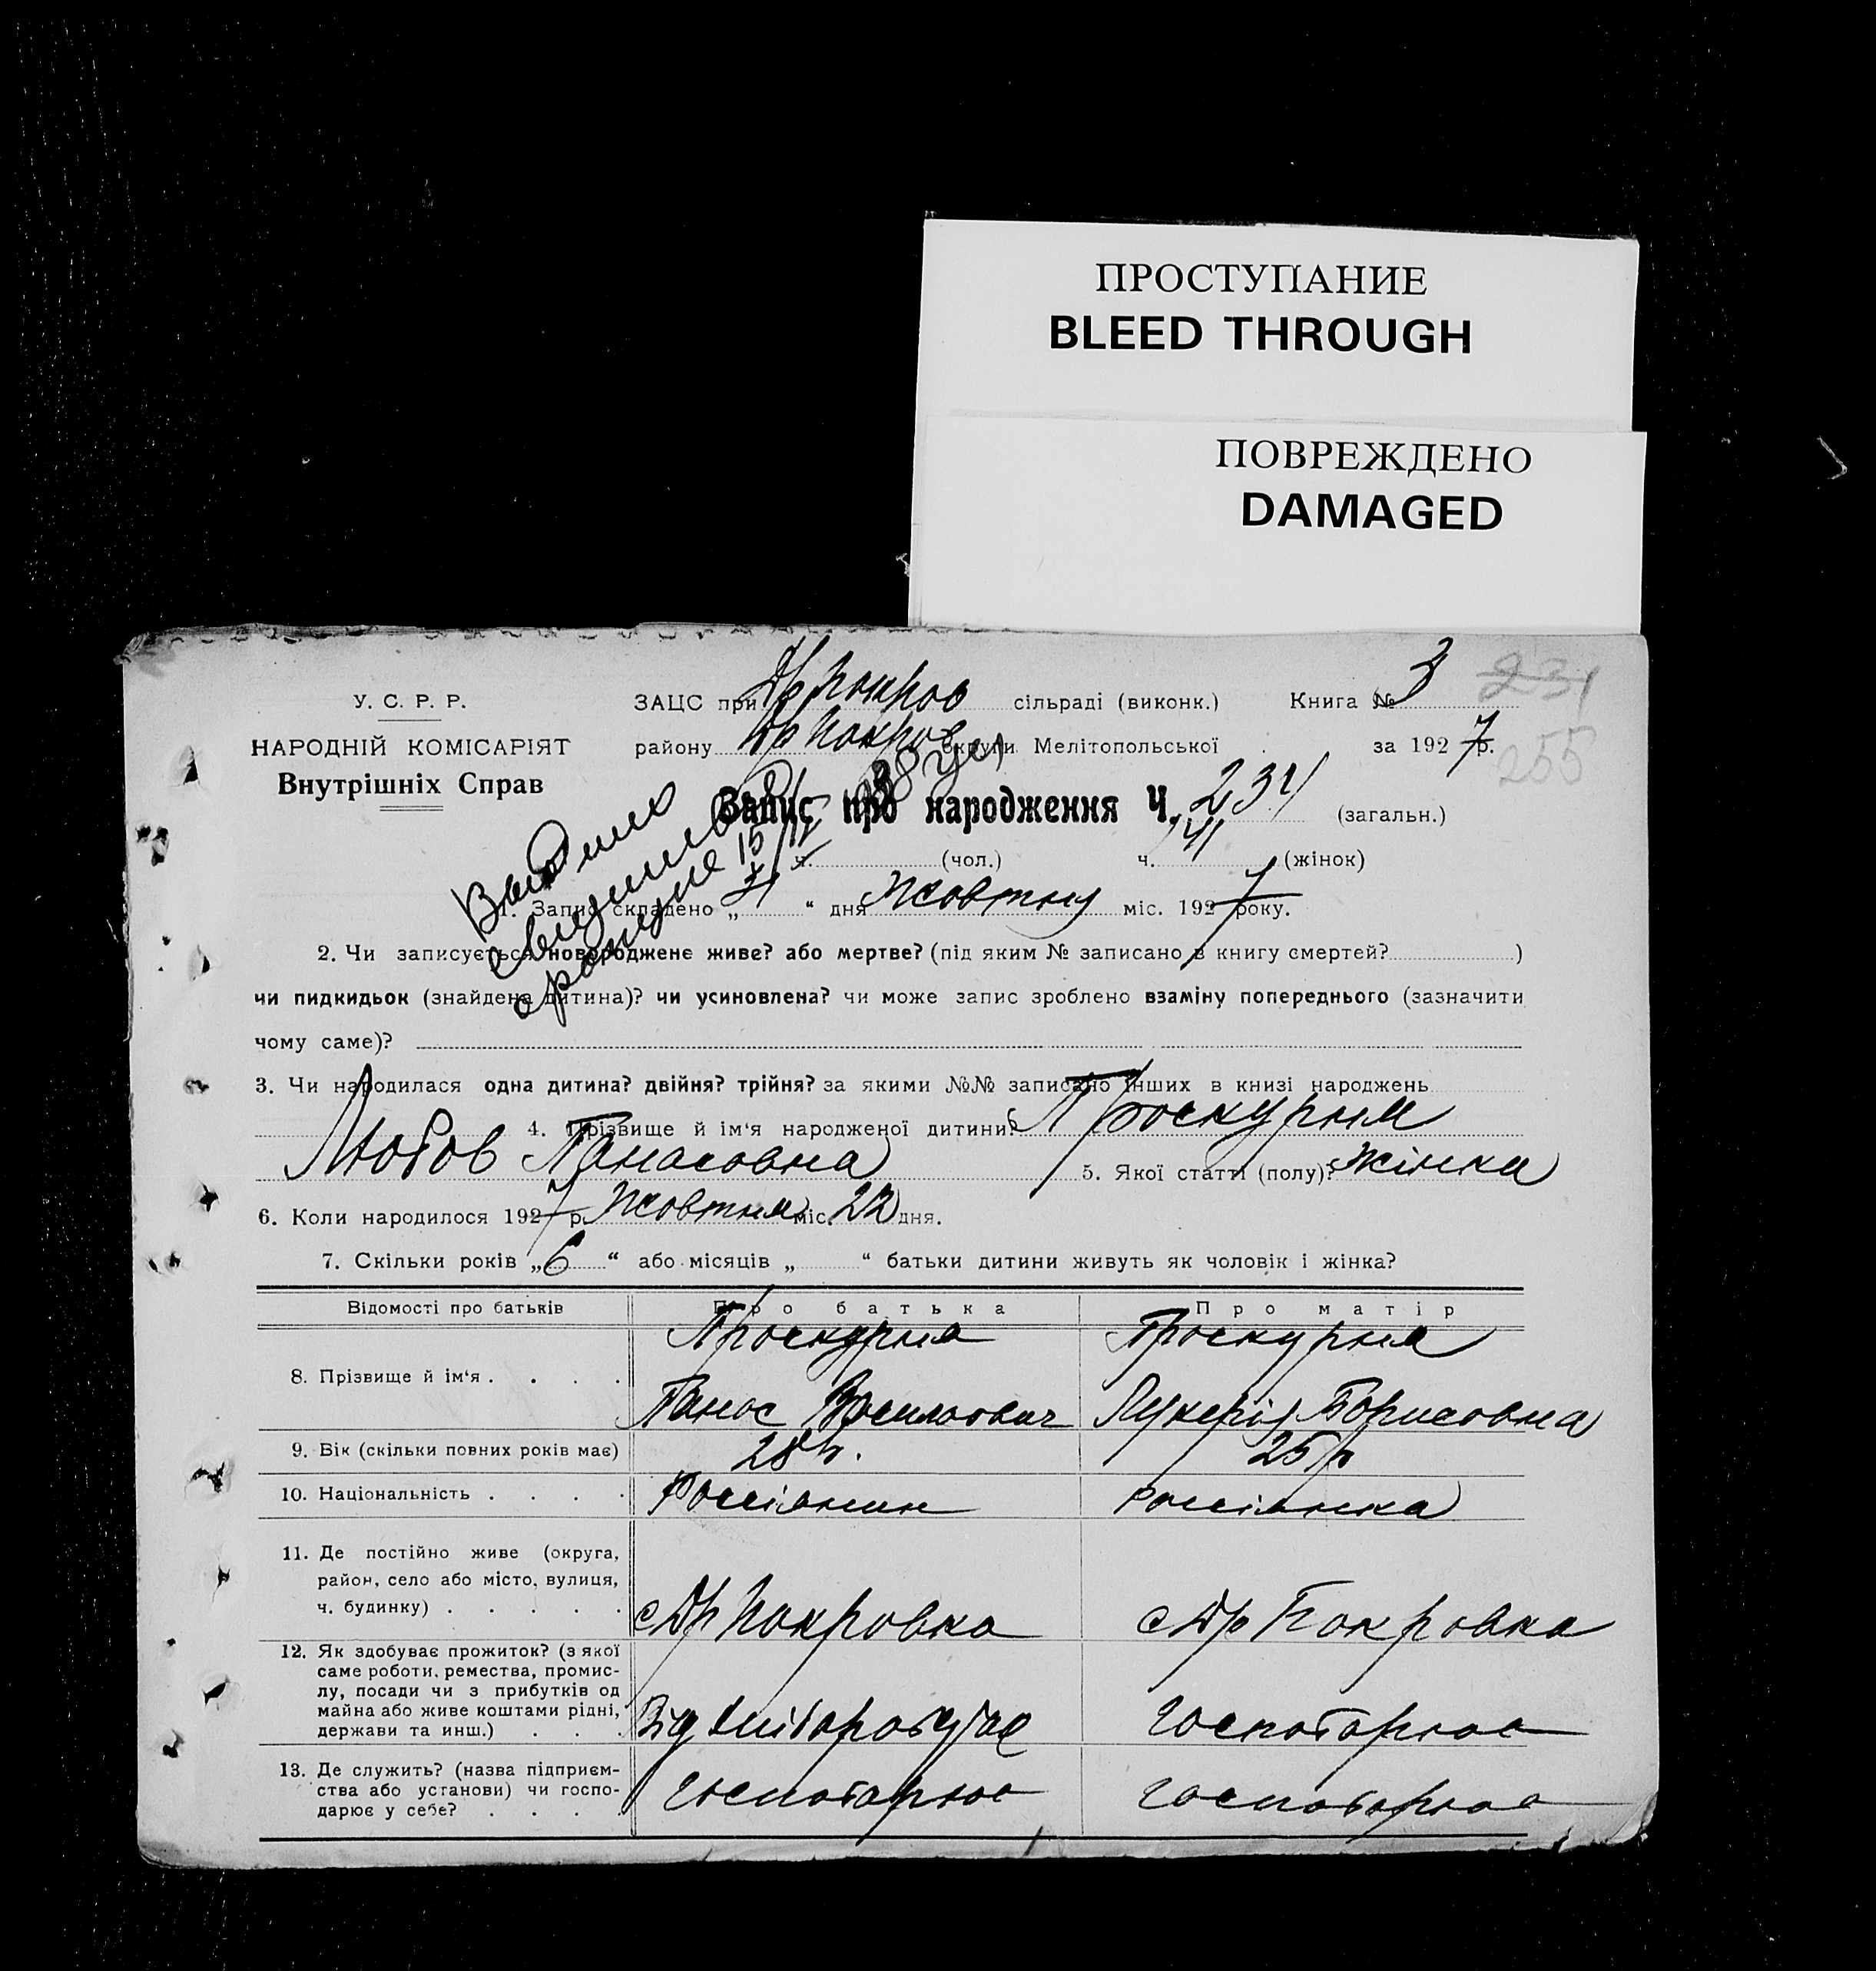 ПРОСТУПАНИЕ
BLEED THROUGH
ПОВРЕЖДЕНО
DAMAGED
231
255
У. С. Р. Р.
НАРОДНІЙ КОМІСАРІЯТ
Внутрішніх Справ
ЗАЦС при Др Покров сільраді (виконк.) Книга № 3
району Др Покров округи Мелітопольської за 1927 р.
Запис про народження Ч. 234 (загальн.)
ч. (чол.) ч. 141 (жінок)
1. Запис складено „ “ дня Жовтня міс. 1927 року.
2. Чи записується новороджене живе? або мертве? (під яким № записано в книгу смертей? )
чи пидкидьок (знайдена дитина)? чи усиновлена? чи може запис зроблено взаміну попереднього (зазначити
чому саме)?
3. Чи народилася одна дитина? двійня? трійня? за якими №№ записано інших в книзі народжень
4. Прізвище й ім‘я народженої дитини? Проскурня
Любов Панасовна 5. Якої статті (полу)? жінка
6. Коли народилося 1927 р. Жовтня міс. 22 дня.
7. Скільки років „ 6 “ або місяців „ “ батьки дитини живуть як чоловік і жінка?
Відомості про батьків Про батька Про матір
8. Прізвище й ім‘я . . . . Проскурня Проскурня
Панас Васильович Лукерія Борисовна
9. Вік (скільки повних років має) 28 р. 25 р
10. Національність . . . . Россіянин Россіянка
11. Де постійно живе (округа,
район, село або місто, вулиця,
ч. будинку) . . . . . с Др Покровка с Др Покровка
12. Як здобуває прожиток? (з якої
саме роботи, ремества, промис-
лу, посади чи з прибутків од
майна або живе коштами рідні,
держави та инш.) . . . Від хліборобства господарює
13. Де служить? (назва підприєм-
ства або установи) чи госпо-
дарює у себе? . . . . господарює господарює